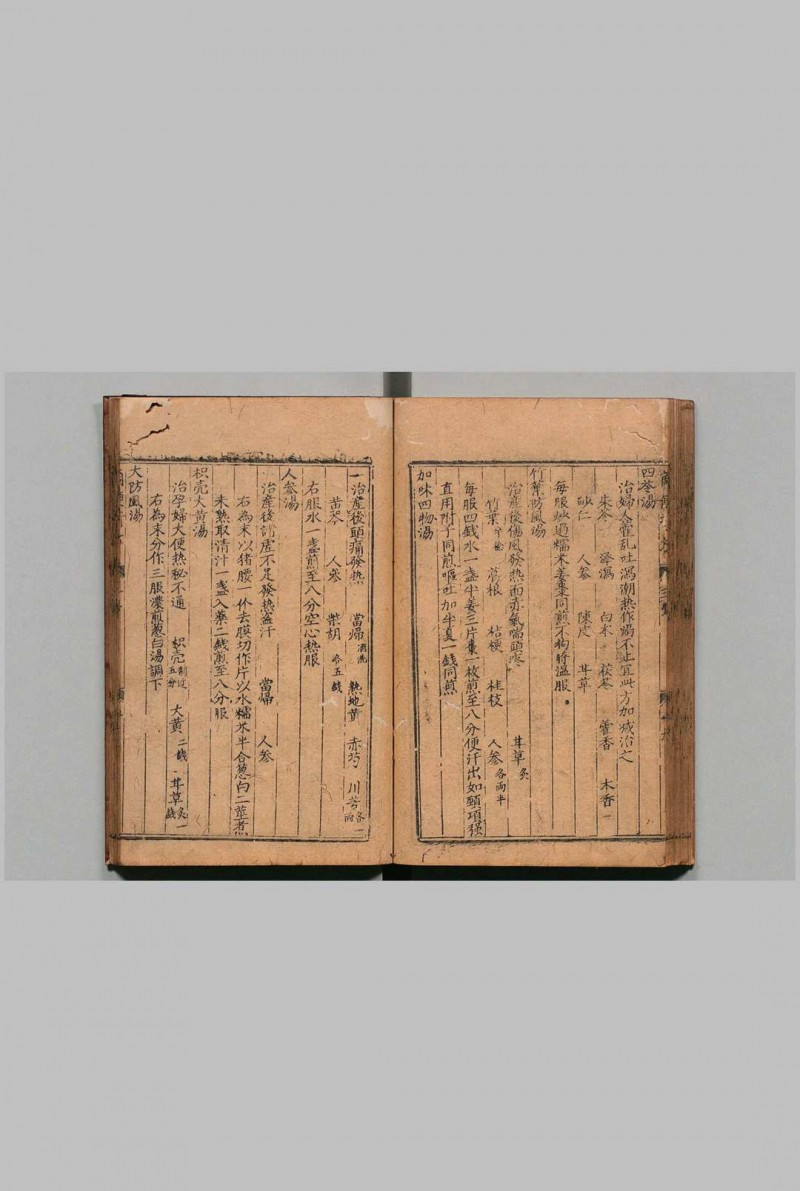 四苓湯
治婦人霍乱吐瀉潮熱作渴不止宜此方加减治之
朱苓 泽瀉 白术 茯苓 藿香 木香一
砂仁 人參 陳皮 甘草
每服炒过糯米姜棗同煎不拘時溫服
竹葉防風湯
治產後傷風發熱面赤氣喘頭疼 甘草炙
竹葉 葛根 桔梗 桂枝 人參各兩半
每服四錢水一盞半姜三片棗一枚煎至八分便汗出如頸項强
直用附子同煎嘔吐加半夏一錢同煎
加味四物湯
一治產後頭痛發熱 當歸酒洗 熟地黃 赤芍 川芎各一兩
黄芩 人參 柴胡各五錢
右服水一盞煎至八分空心熱服
人參湯
治產後諸虛不足發熱盗汗 當歸 人參
右為末以猪腰一个去膜切作片以水糯米半合葱白二莖煮
米熟取清汁一盞入藥二錢煎至八分服
枳壳大黄湯
治孕婦大便熱秘不通 枳壳五分 大黄二錢 甘草炙一錢
右為末分作三服濃煎葱白湯調下
大防風湯